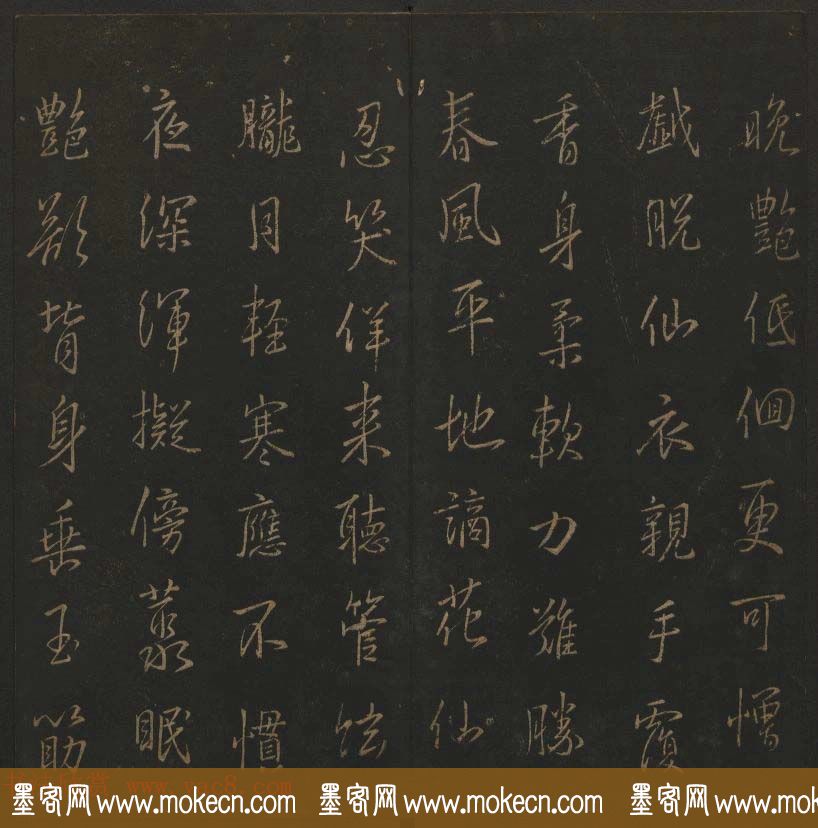 晚艷低佪更可憎
戲脫仙衣親手覆
香身柔軟力難勝
春風平地謫花仙
忍笑佯来聽管弦
朧月輕寒應不慣
夜深渾擬傍叢眠
艷歌背身垂玉筯
墨客网 www.mokecn.com 墨客网 www.mokecn.com 墨客网 www.mokecn.com